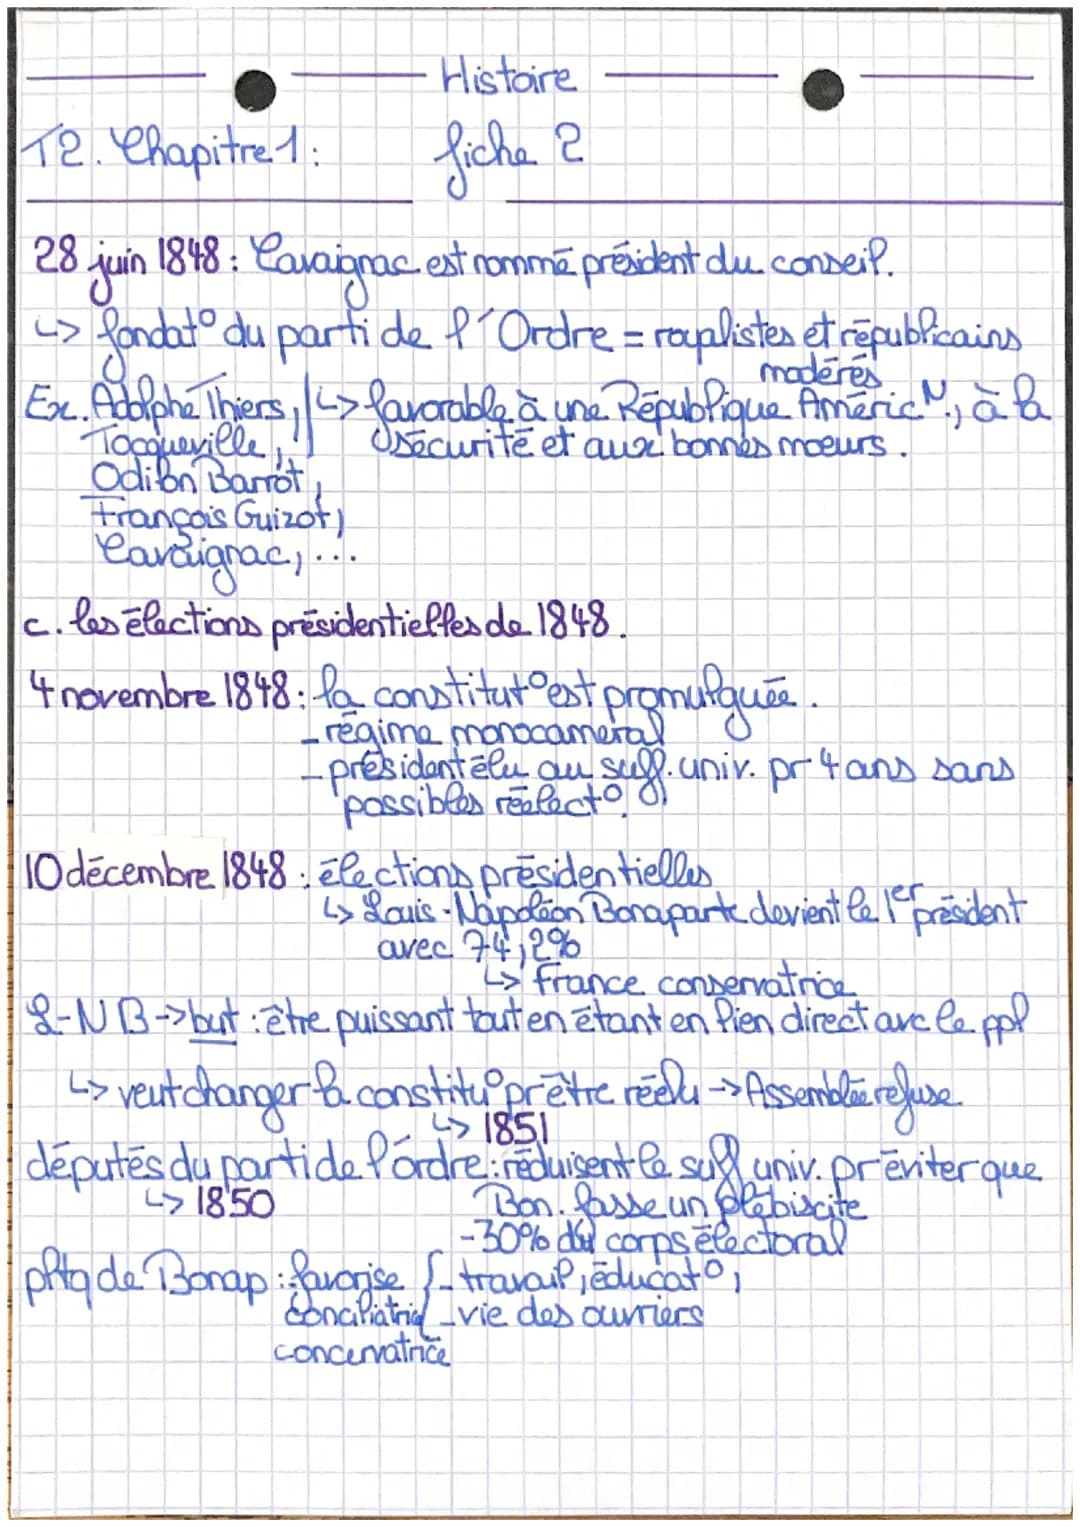 Histoire
T2. Chapitre 1: fiche 2
28 juin 1848 : Cavaignac est nommé président du conseil.
↳ fondat° du parti de l'Ordre = royalistes et républicains
modérés
Ex. Adolphe Thiers, ↳ favorable à une République Améric^N., à la
Tocqueville, sécurité et aux bonnes moeurs.
Odilon Barrot,
François Guizot,
Cavaignac, ...
c. les élections présidentielles de 1848.
4 novembre 1848 : la constitut° est promulguée.
- régime monocaméral
- président élu au suff. univ. pr 4 ans sans
possibles réélect°.
10 décembre 1848 : élections présidentielles
↳ Louis-Napoléon Bonaparte devient le 1er président
avec 74,2%
↳ France conservatrice
L-NB -> but : être puissant tout en étant en lien direct avc le ppl
↳ veut changer la constitu° pr être réélu -> Assemblée refuse
↳ 1851
députés du parti de l'ordre : réduisent le suff univ. pr éviter que
↳ 1850 Bon. fasse un plébiscite
-30% du corps électoral
pltq de Bonap : favorise - travail, éducat°,
conciliatrice - vie des ouvriers
concervatrice